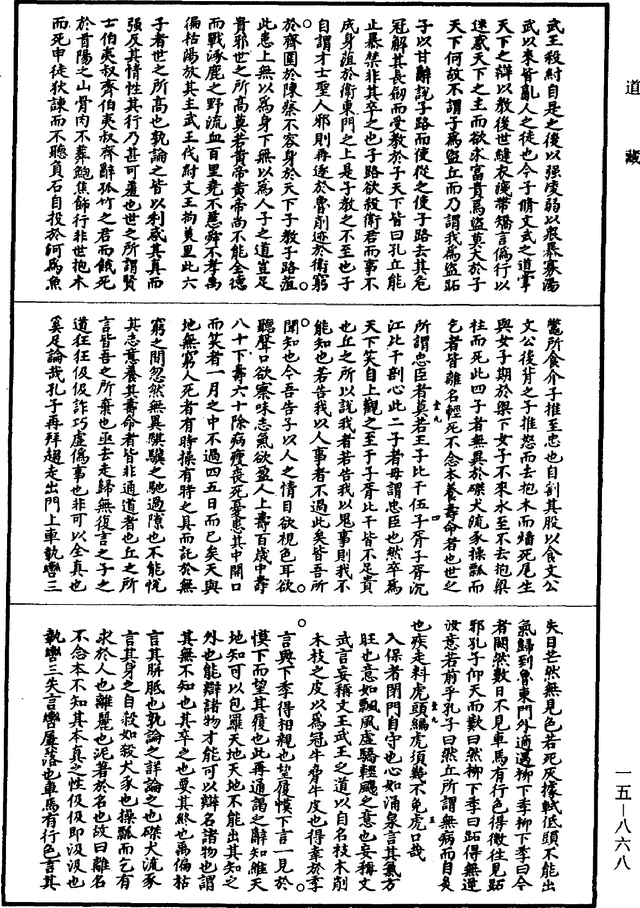 道藏
武王殺紂自是之後以強陵弱以眾暴寡湯
武以來皆亂人之徒也今子脩文武之道掌
天下之辯以教後世縫衣淺帶矯言偽行以
迷惑天下之主而欲求富貴焉盜莫大於子
天下何故不謂子為盜丘而乃謂我為盜跖
子以甘辭說子路而使從之使子路去其危
冠解其長劍而受教於子天下皆曰孔丘能
止暴禁非其卒之也子路欲殺衛君而事不
成身菹於衛東門之上是子教之不至也子
自謂才士聖人邪則再逐於魯削迹於衛窮
於齊圍於陳蔡不容身於天下子教子路菹
此患上無以為身下無以為人子之道豈足
貴邪世之所高莫若黃帝黃帝尚不能全德
而戰涿鹿之野流血百里堯不慈舜不孝禹
偏枯湯放其主武王伐紂文王拘羑里此六
子者世之所高也孰論之皆以利惑其真而
強反其情性其行乃甚可羞也世之所謂賢
士伯夷叔齊伯夷叔齊辭孤竹之君而餓死
於首陽之山骨肉不葬鮑焦飾行非世抱木
而死申徒狄諫而不聽負石自投於河為魚
鱉所食介子推至忠也自割其股以食文公
文公後背之子推怒而去抱木而燔死尾生
與女子期於梁下女子不來水至不去抱梁
柱而死此四子者無異於磔犬流豕操瓢而
乞者皆離名輕死不念本養壽命者也世之
所謂忠臣者莫若王子比干伍子胥子胥沉
江比干剖心此二子者世謂忠臣也然卒為
天下笑自上觀之至于子胥比干皆不足貴
也丘之所以說我者若告我以鬼事則我不
能知也若告我以人事者不過此矣皆吾所
聞知也今吾告子以人之情目欲視色耳欲
聽聲口欲察味志氣欲盈人上壽百歲中壽
八十下壽六十除病瘦喪死憂患其中開口
而笑者一月之中不過四五日而已矣天與
地無窮人死者有時操有時之具而託於無
窮之間忽然無異騏驥之馳過隙也不能悅
其志意養其壽命者皆非通道者也丘之所
言皆吾之所棄也亟去走歸無復言之子之
道狂狂伋伋詐巧虛偽事也非可以全真也
奚足論哉孔子再拜趨走出門上車執轡三
失目芒然無見色若死灰據軾低頭不能出
氣歸到魯東門外適遇柳下季柳下季曰今
者闕然數日不見車馬有行色得微往見跖
邪孔子仰天而歎曰然柳下季曰跖得無逆
汝意若前乎孔子曰然丘所謂無病而自灸
也疾走料虎頭編虎須幾不免虎口哉
入保者閉門自守也心如涌泉言其氣方
旺也意如飄風虛驕輕颺之意也妄稱文
武言妄稱文王武王之道以自名枝木削
木枝之皮以為冠牛脅牛皮也得幸於季
言與下季得相親也望履幕下言一見於
幙下而望其履也此再通謁之辭知維天
地知可以包羅天地天地不能出其知之
外也能辯諸物才能可以辯名諸物也謂
其無不知也其卒之也要其終也禹偏枯
言其胼胝也孰論之詳論之也磔犬流豕
言其身之自殺如殺犬豕也操瓢而乞有
求於人也離麗也泥著於名也故曰離名
不念本不知其本真之性伋伋即汲汲也
執轡三失言轡屢落也車馬有行色言其
一五—八六八